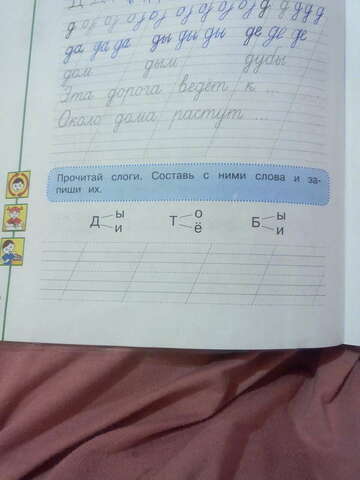 да да да ды ды ды де де де
дом дым дубы
Эта дорога ведёт к ...
Около дома растут ...
Прочитай слоги. Составь с ними слова и за-
пиши их.
Д ы и Т о ё Б ы и